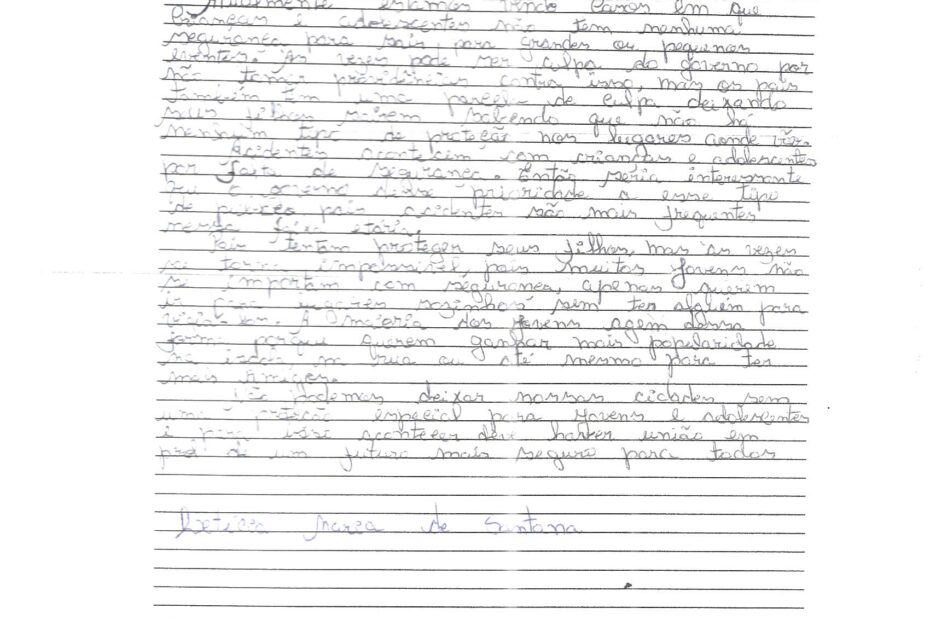 Atualmente estamos vendo casos em que
crianças e adolescentes não tem nenhuma
segurança para sair para grandes ou pequenos
eventos. As vezes pode ser culpa do governo por
não tomar providências contra isso, mas os pais
também tem uma parcela de culpa deixando
seus filhos sairem sabendo que não há
nenhum tipo de proteção nos lugares aonde vão.
Acidentes acontecem com crianças e adolescentes
por falta de segurança. Então seria interessante
se o governo desse prioridade a esse tipo
de pois acidentes são mais frequentes
nessa faixa etária.
Pais tentam proteger seus filhos, mas as vezes
se torna impossível, pois muitos jovens não
se importam com segurança, apenas querem
ir para lugares sozinhos sem ter alguém para
vigia-los. A maioria dos jovens agem dessa
forma porque querem ganhar mais popularidade
na escola na rua ou até mesmo para ter
mais amigos.
Não podemos deixar nossas cidades sem
uma proteção especial para jovens e adolescentes
e para isso acontecer deve haver união em
pró de um futuro mais seguro para todos
Leticia Maria de Santana